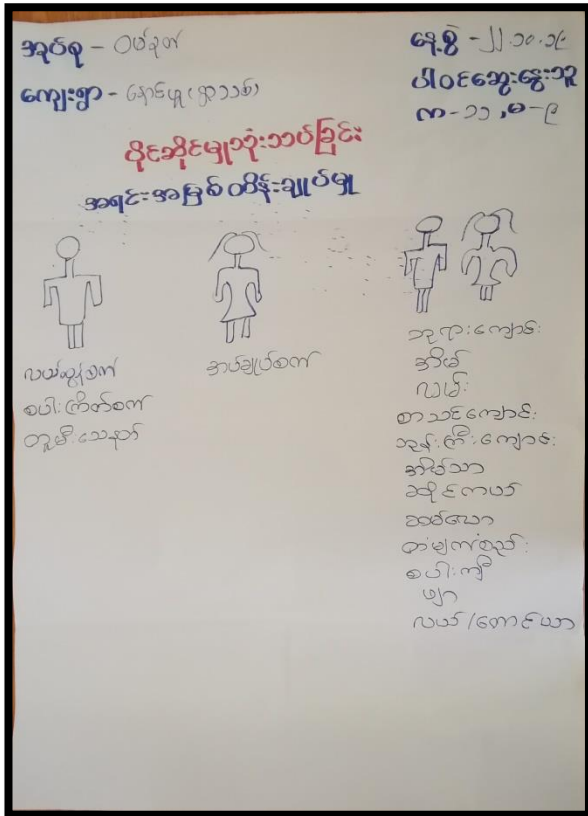 အုပ်စု - ဝပ်ခုတ်
ကျေးရွာ - နောင်ယူ (ရွာသစ်)
နေ့စွဲ - ၂၂.၁၀.၁၉
ပါဝင်ဆွေးနွေးသူ
က-၁၁, မ-၉
ပိုင်ဆိုင်မှုသုံးသပ်ခြင်း
အရင်းအမြစ်ထိန်းချုပ်မှု
လယ်ထွန်စက်
စပါးကြိတ်စက်
တူမီးသေနတ်
အပ်ချုပ်စက်
ဘုရားကျောင်း
အိမ်
လမ်း
စာသင်ကျောင်း
ဘုန်းကြီးကျောင်း
အိမ်သာ
ဆိုင်ကယ်
တံမြက်စည်း
စပါးကျီ
ဖျာ
လယ်/တောင်ယာ